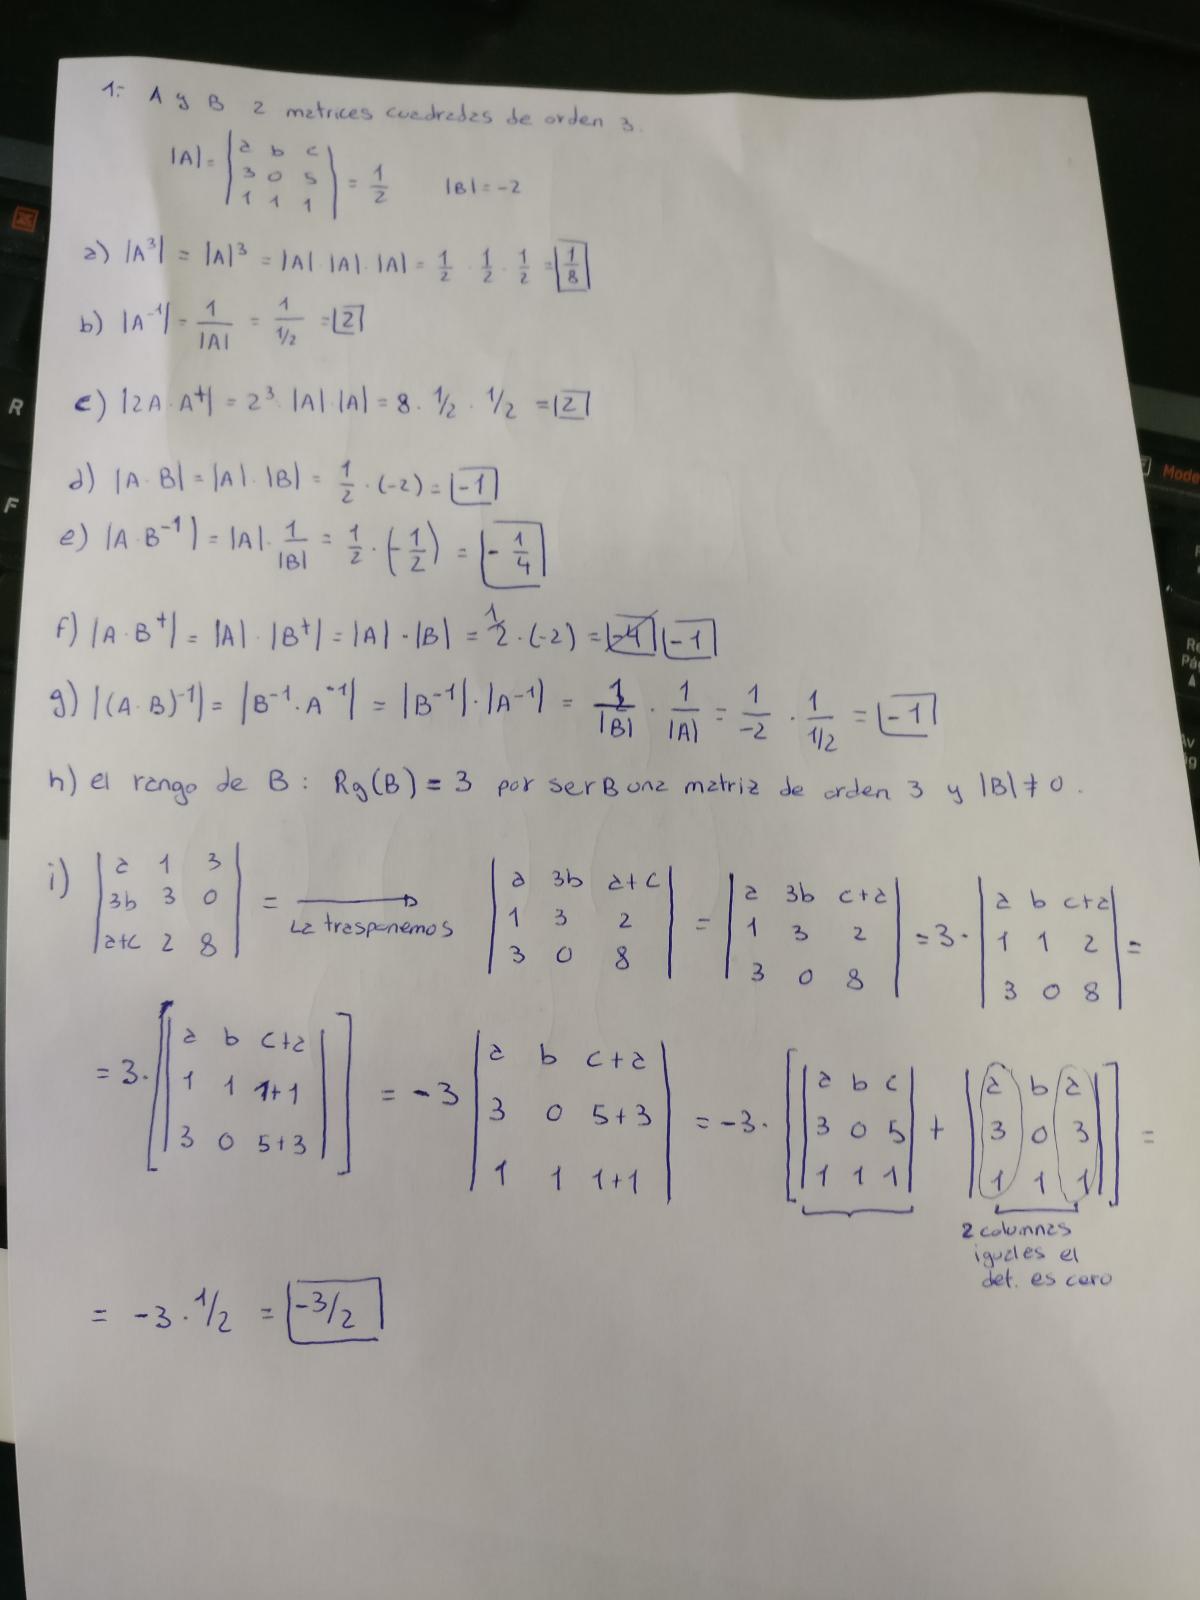 1:- A y B 2 matrices cuadradas de orden 3.
|A| = | a b c ; 3 0 5 ; 1 1 1 | = 1/2 |B| = -2
a) |A³| = |A|³ = |A| · |A| · |A| = 1/2 · 1/2 · 1/2 = 1/8
b) |A⁻¹| = 1/|A| = 1/1/2 = 2
c) |2A · Aᵗ| = 2³ · |A| · |A| = 8 · 1/2 · 1/2 = 2
d) |A · B| = |A| · |B| = 1/2 · (-2) = -1
e) |A · B⁻¹| = |A| · 1/|B| = 1/2 · (-1/2) = -1/4
f) |A · Bᵗ| = |A| · |Bᵗ| = |A| · |B| = 1/2 · (-2) = -4 -1
g) |(A · B)⁻¹| = |B⁻¹ · A⁻¹| = |B⁻¹| · |A⁻¹| = 1/|B| · 1/|A| = 1/-2 · 1/1/2 = -1
h) el rango de B : Rg(B) = 3 por ser B una matriz de orden 3 y |B| ≠ 0.
i) | a 1 3 ; 3b 3 0 ; a+c 2 8 | = → La trasponemos | a 3b a+c ; 1 3 2 ; 3 0 8 | = | a 3b c+a ; 1 3 2 ; 3 0 8 | = 3 · | a b c+a ; 1 1 2 ; 3 0 8 | =
= 3 · [ | a b c+a ; 1 1 1+1 ; 3 0 5+3 | ] = -3 | a b c+a ; 3 0 5+3 ; 1 1 1+1 | = -3 · [ | a b c ; 3 0 5 ; 1 1 1 | + | a b a ; 3 0 3 ; 1 1 1 | ] =
2 columnas
iguales el
det. es cero
= -3 · 1/2 = -3/2
R
F